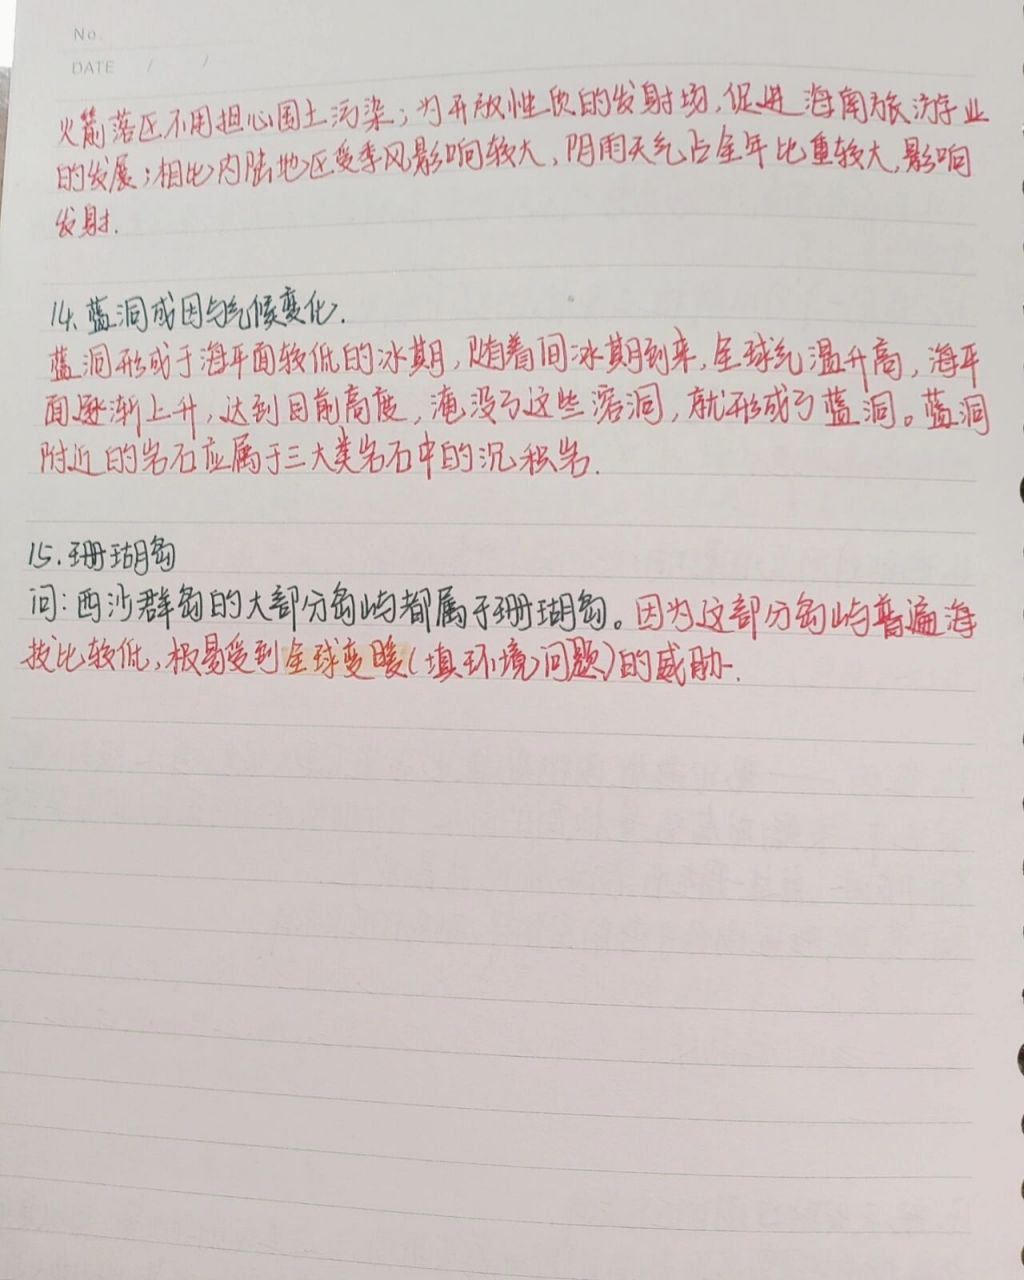 No.
DATE / /
火箭落区不用担心国土污染；为开放性质的发射场，促进海南旅游业
的发展；相比内陆地区受季风影响较大，阴雨天气占全年比重较大，影响
发射.
14. 蓝洞成因与气候变化.
蓝洞形成于海平面较低的冰期，随着间冰期到来，全球气温升高，海平
面逐渐上升，达到目前高度，淹没了这些溶洞，就形成了蓝洞。蓝洞
附近的岩石应属于三大类岩石中的沉积岩.
15. 珊瑚岛
问：西沙群岛的大部分岛屿都属于珊瑚岛。因为这部分岛屿普遍海
拔比较低，极易受到全球变暖(填环境问题)的威胁.